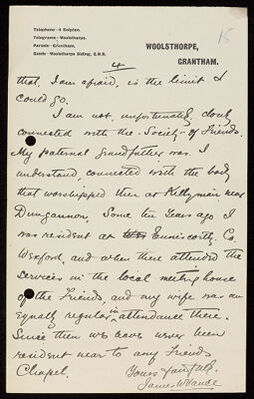 Telephone - 4 Belvoir.
Telegrams - Woolsthorpe.
Parcels - Grantham.
Goods - Woolsthorpe Siding, G.N.R.
WOOLSTHORPE,
GRANTHAM.
15
4
that, I am afraid, is the limit I
could go.
I am not, unfortunately, closely
connected with the Society of Friends.
My paternal Grandfather was, I
understand, connected with the body
that worshipped then at Killyman near
Dungannon. Some ten years ago I
was resident at Enniscorthy, Co.
Wexford, and when there attended the
services in the local meeting house
of the Friends, and my wife was an
equally regular in attendance there.
Since then we have never been
resident near to any Friends
Chapel.
Yours faithfully
James W